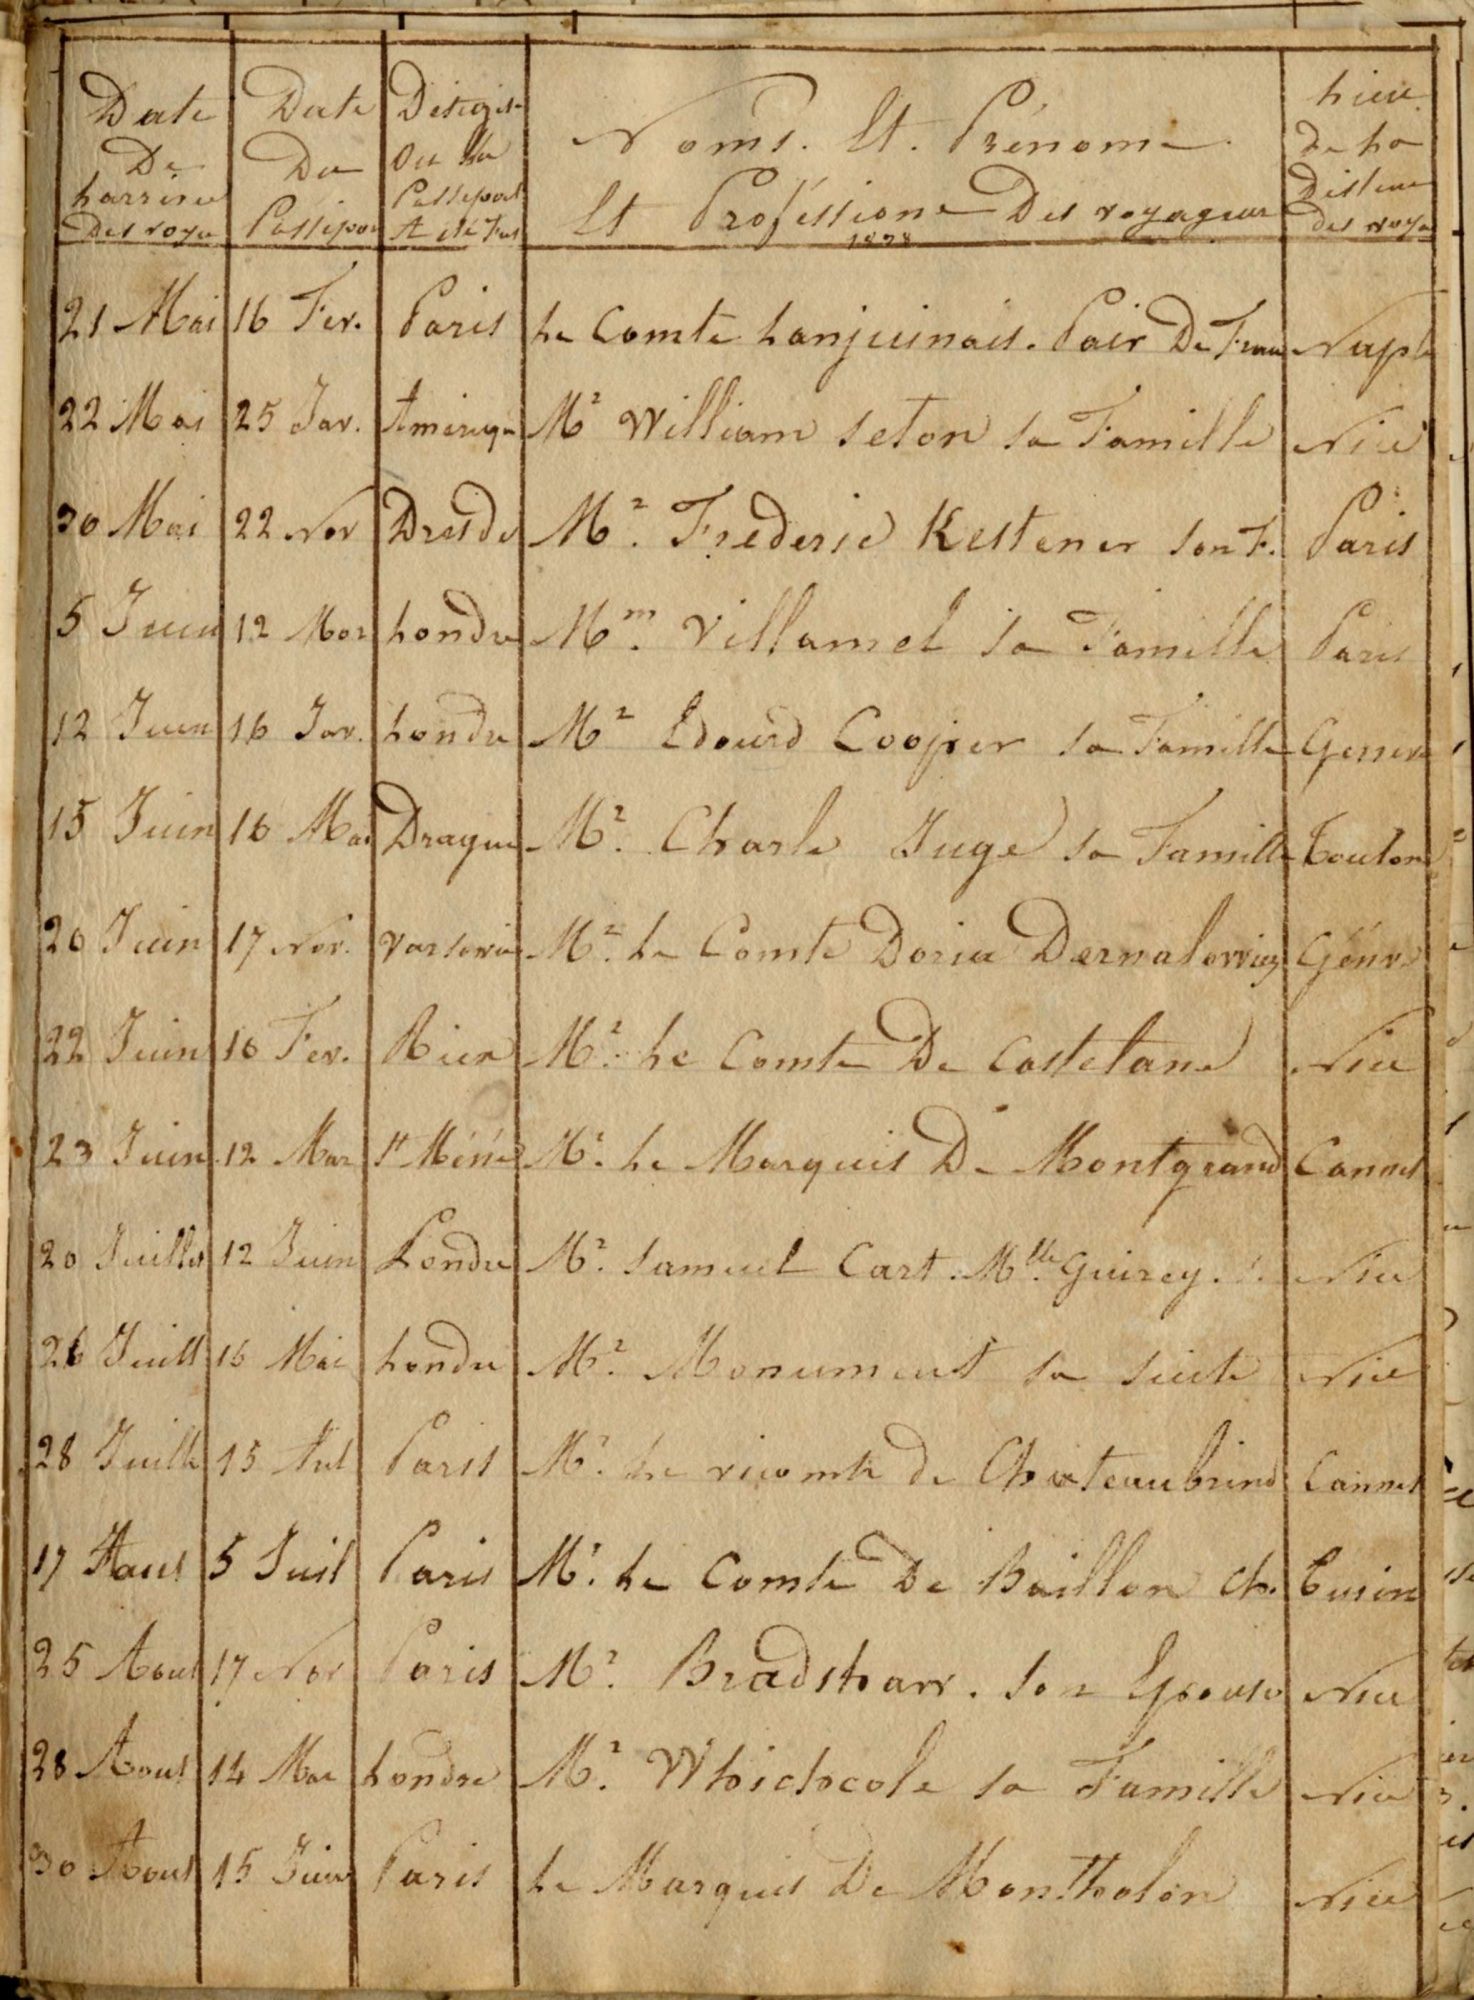 Date De Larrivee Des voya
Date Du Passepor
Désigst Ou Le Passeport A été Fait
Noms. Et. Prénoms Et Professions Des voyageurs
1828
Lieu de La Distina des voya
21 Mai 16 Fev. Paris Le Comte Lanjuinais. Pair De Fran Naple
22 Mai 25 Jav. Ameriqu Mr William Seton Sa Famille Nice
30 Mai 22 Nov Dresde Mr. Frederic Kestener Son F. Paris
5 Juin 12 Mar Londre Mm. Villamel Sa Famille Paris
12 Juin 16 Jav. Londre Mr Edouard Cooper Sa Famille Geneve
15 Juin 16 Mai Dragui Mr. Charle Juge Sa Famille Toulon
20 Juin 17 Nov. Varsovie Mr. Le Comte Doria Dernalovviez Génve
22 Juin 16 Fev. Rien Mr. Le Comte De Castelane Nice
23 Juin 12 Mar St Méné Mr. Le Marquis De Montgrand Cannes
20 Juillet 12 Juin Londre Mr. Samuel Cart. Mlle. Guirey. Nice
26 Juill 16 Mai Londre Mr. Monument Sa Suite Nice
28 Juille 15 Paris Mr. Le vicomte de Chateaubriand Cannes
17 Aous 5 Juil Paris Mr. Le Comte De Baillon Ch. Turin
25 Aout 17 Nov Paris Mr. Bradshavv. Son Epouse Nice
28 Aout 14 Mar Londre Mr. Whichcole Sa Famille Nice
30 Aout 15 Juin Paris Le Marquis De Montholon Nice